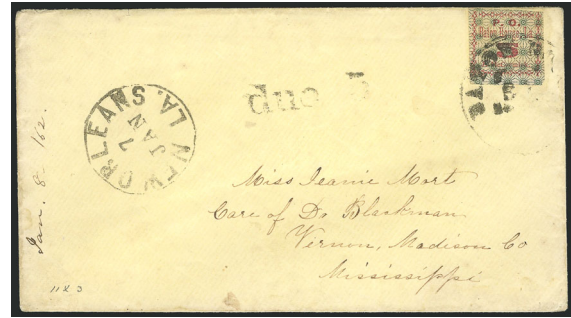 P. O.
Baton Rouge, La.
5
due 5
NEW ORLEANS LA.
JAN
7
Jan. 8 '62.
Miss Jeanie Mort
Care of Dr Blackman
Vernon, Madison Co
Mississippi
11 X 3